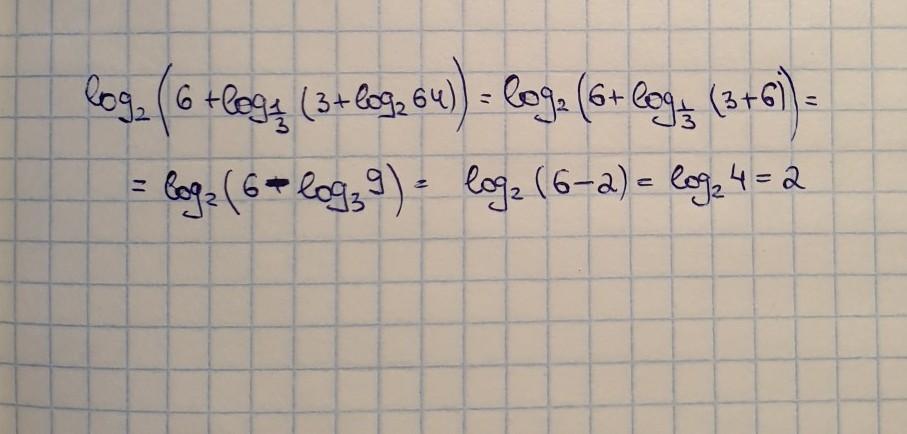 log₂(6+log_{1/3}(3+log₂64)) = log₂(6+log_{1/3}(3+6)) =
= log₂(6-log₃9) = log₂(6-2) = log₂4 = 2